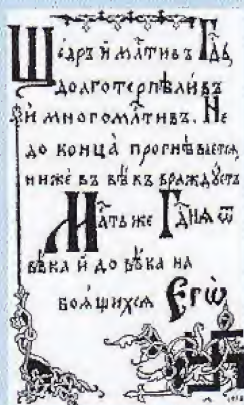 Ще́дръ и҆ мл҃тивъ Гд҇ь,
долготерпѣли́въ
и҆ многомл҃тивъ. Не
до конца̀ прогнѣвается,
нижѐ въ вѣ́къ враждꙋ́етъ
Мл҃ть же Гд҇ня ѿ
вѣ́ка и҆ до вѣ́ка на
боя́щихся Єгѡ̀